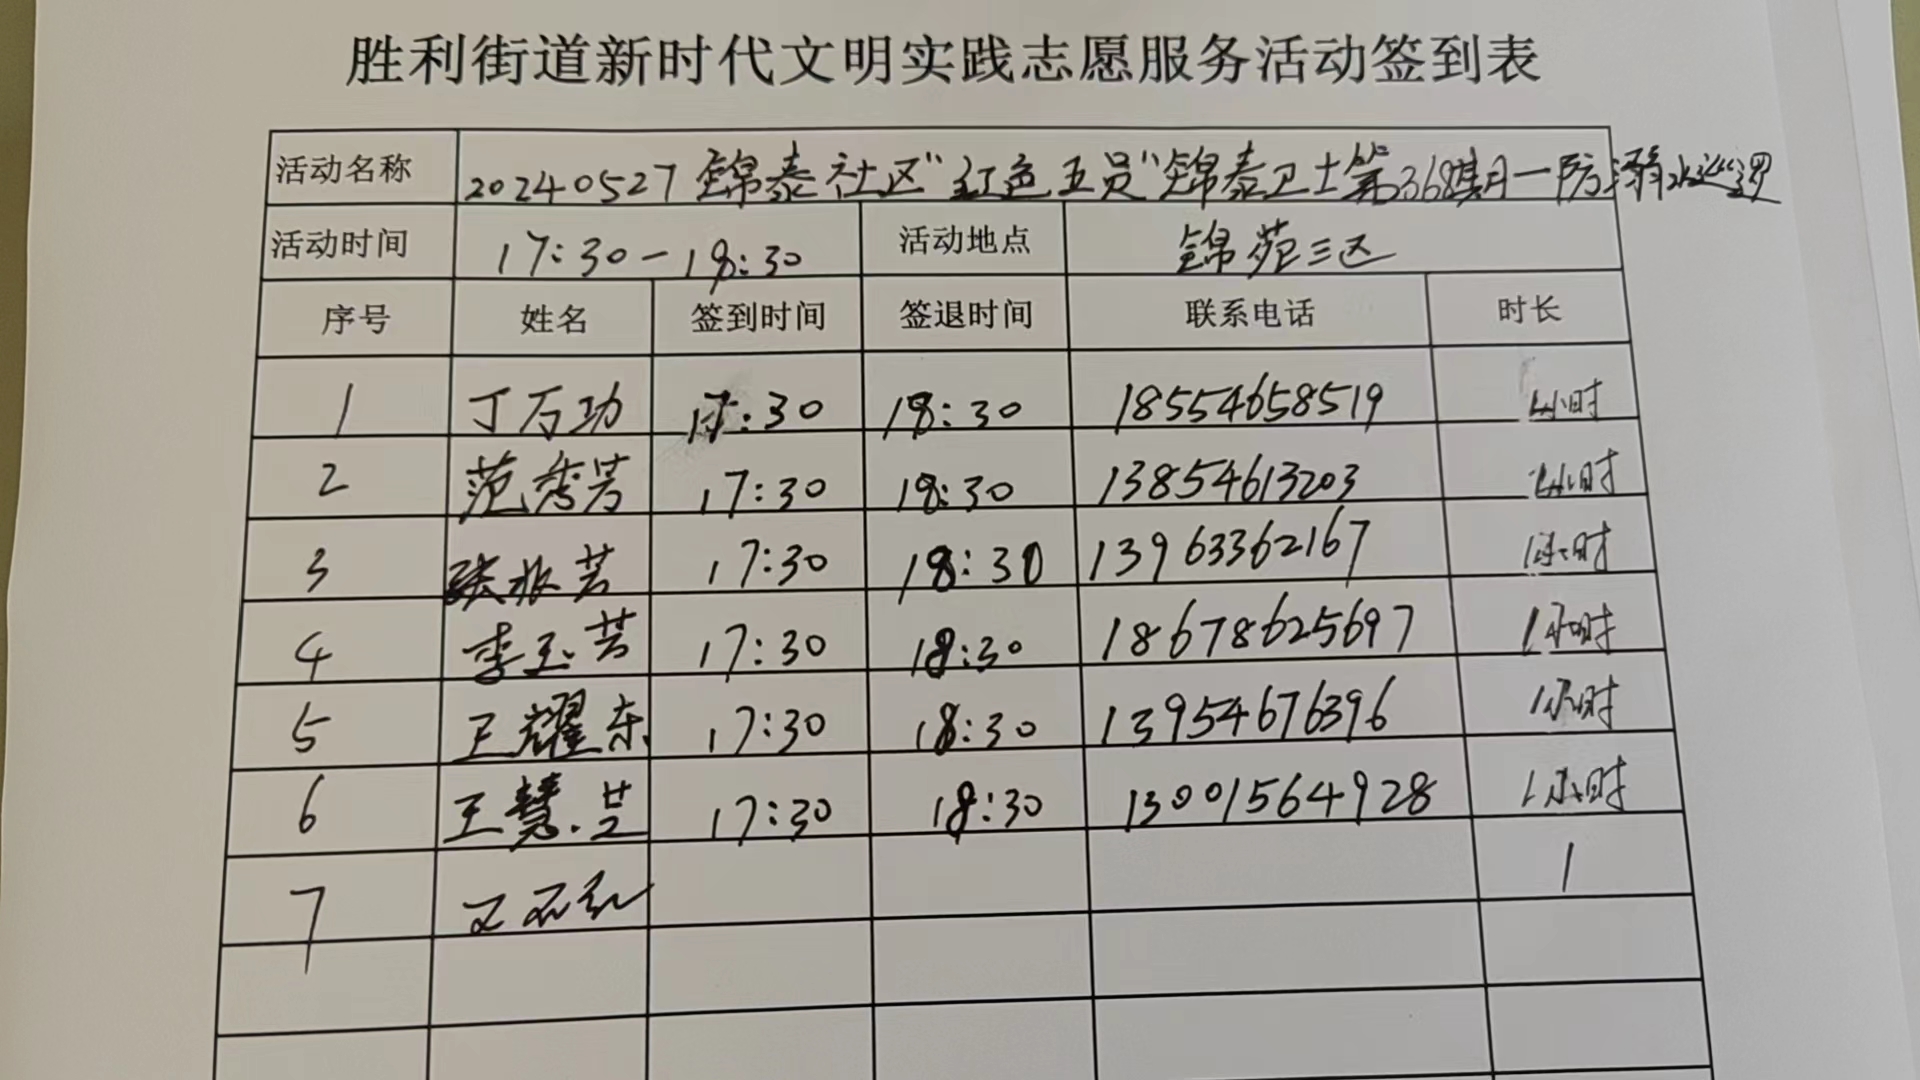 胜利街道新时代文明实践志愿服务活动签到表
活动名称 20240527锦泰社区“红色五员”锦泰卫士第368期—防溺水巡逻
活动时间 17:30-18:30 活动地点 锦苑三区
序号 姓名 签到时间 签退时间 联系电话 时长
1 丁万功 17:30 18:30 18554658519 1小时
2 范秀芳 17:30 18:30 13854613203 1小时
3 张振芳 17:30 18:30 13963362167 1小时
4 李玉芳 17:30 18:30 18678625697 1小时
5 王耀东 17:30 18:30 13954676396 1小时
6 王慧芝 17:30 18:30 13001564928 1小时
7 1